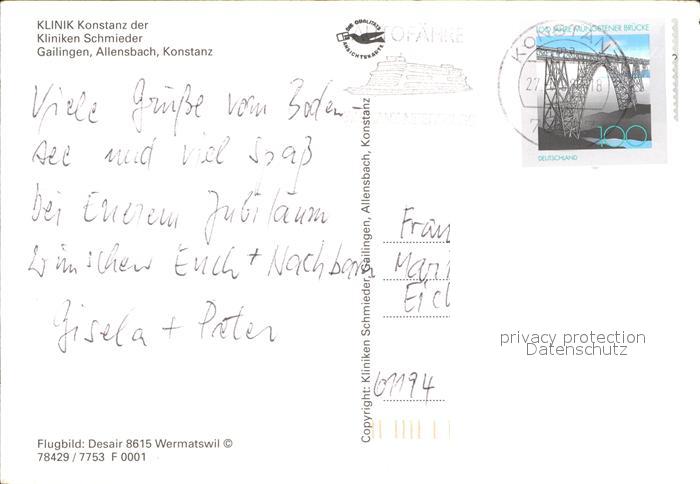 KLINIK Konstanz der
Kliniken Schmieder
Gailingen, Allensbach, Konstanz
Viele Grüße vom Boden-
see und viel Spaß
bei Euerem Jubiläum
wünschen Euch + Nachbarn
Gisela + Peter
Flugbild: Desair 8615 Wermatswil ©
78429 / 7753 F 0001
Copyright: Kliniken Schmieder, Gailingen, Allensbach, Konstanz
DIE QUALITÄTS
ANSICHTSKARTE
AUTOFÄHRE
KONSTANZ
27
18
100 JAHRE MÜNGSTENER BRÜCKE
100
DEUTSCHLAND
Frau
Mari
Eic
61194
privacy protection
Datenschutz